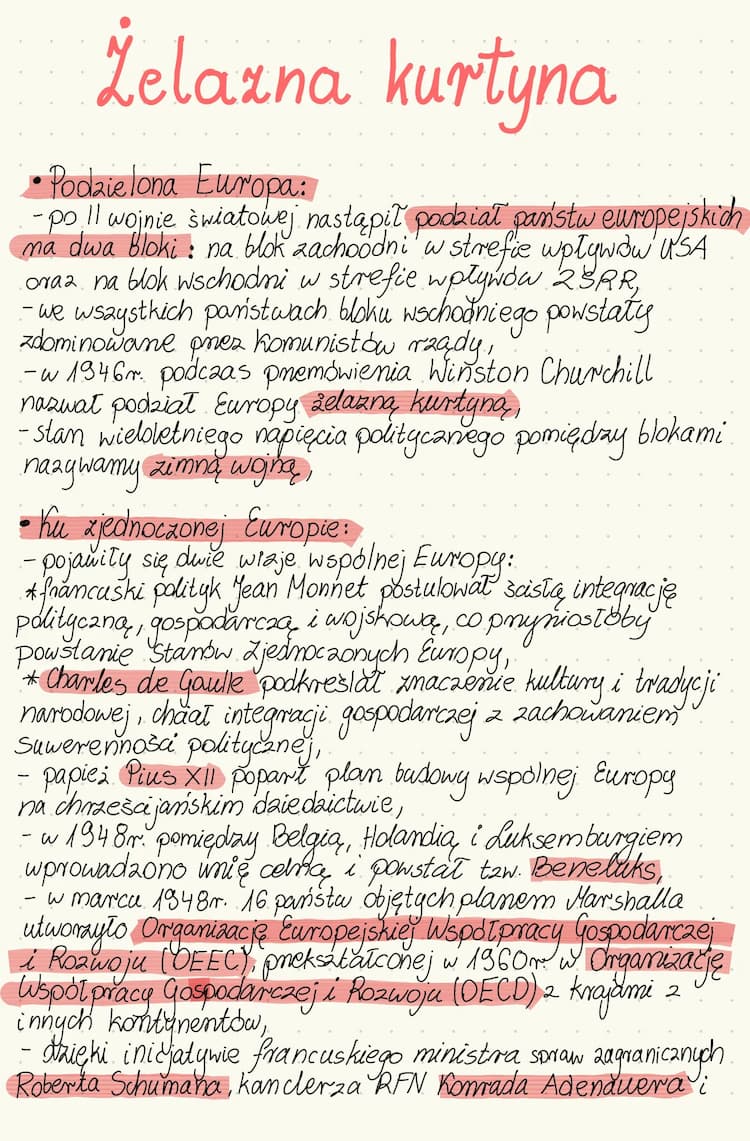 Żelazna kurtyna
• Podzielona Europa:
- po II wojnie światowej nastąpił podział państw europejskich
na dwa bloki: na blok zachodni w strefie wpływów USA
oraz na blok wschodni w strefie wpływów ZSRR,
- we wszystkich państwach bloku wschodniego powstały
zdominowane przez komunistów rządy,
- w 1946r. podczas przemówienia Winston Churchill
nazwał podział Europy żelazną kurtyną,
- stan wieloletniego napięcia politycznego pomiędzy blokami
nazywamy zimną wojną,
• Ku zjednoczonej Europie:
- pojawiły się dwie wizje wspólnej Europy:
* francuski polityk Jean Monnet postulował ścisłą integrację
polityczną, gospodarczą i wojskową, co przyniosłoby
powstanie Stanów Zjednoczonych Europy,
* Charles de Gaulle podkreślał znaczenie kultury i tradycji
narodowej, chciał integracji gospodarczej z zachowaniem
suwerenności politycznej,
- papież Pius XII poparł plan budowy wspólnej Europy
na chrześcijańskim dziedzictwie,
- w 1948r. pomiędzy Belgią, Holandią i Luksemburgiem
wprowadzono unię celną i powstał tzw. Beneluks,
- w marcu 1948r. 16 państw objętych planem Marshalla
utworzyło Organizację Europejskiej Współpracy Gospodarczej
i Rozwoju (OEEC), przekształconej w 1960r. w Organizację
Współpracy Gospodarczej i Rozwoju (OECD) z krajami z
innych kontynentów,
- dzięki inicjatywie francuskiego ministra spraw zagranicznych
Roberta Schumana, kanclerza RFN Konrada Adenauera i